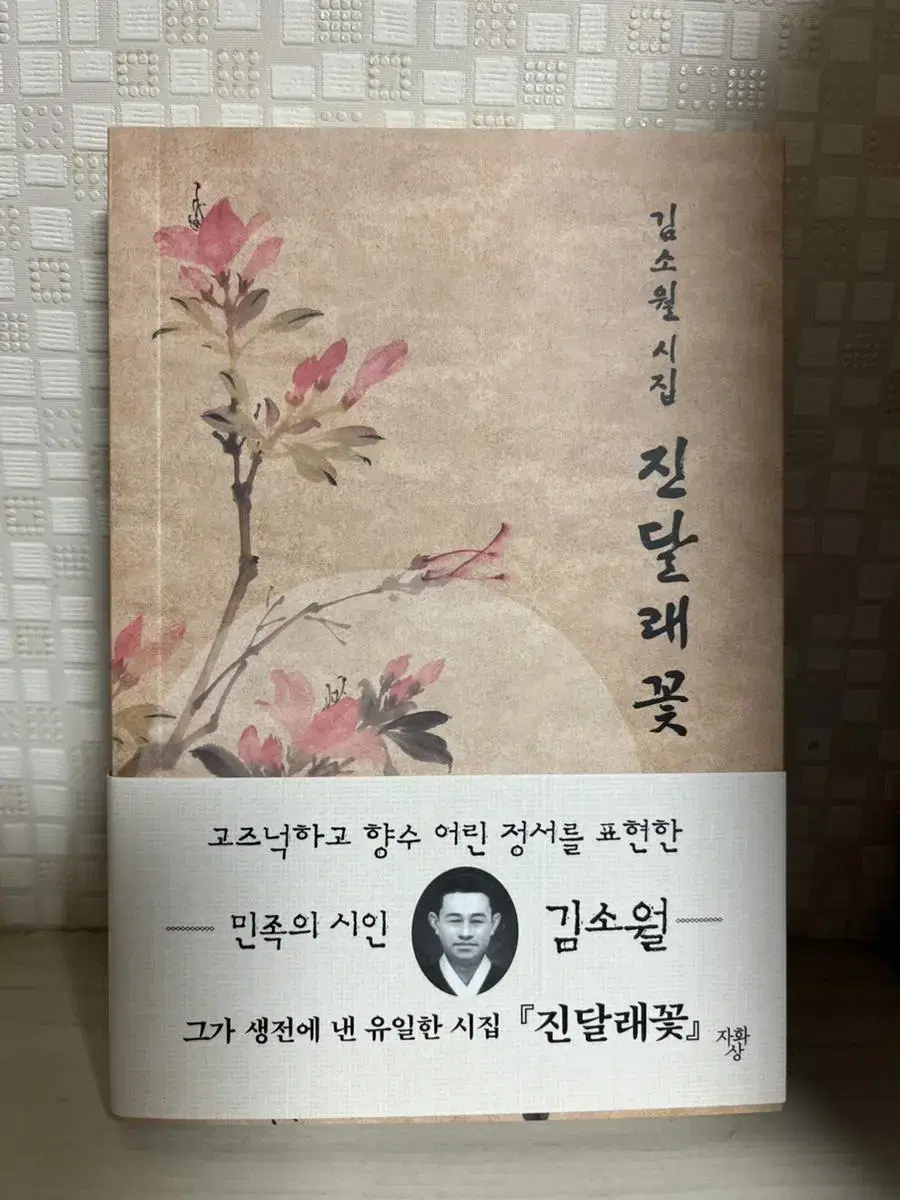 김소월 시집
진달래꽃
고즈넉하고 향수 어린 정서를 표현한
민족의 시인 김소월
그가 생전에 낸 유일한 시집 『진달래꽃』
자화상